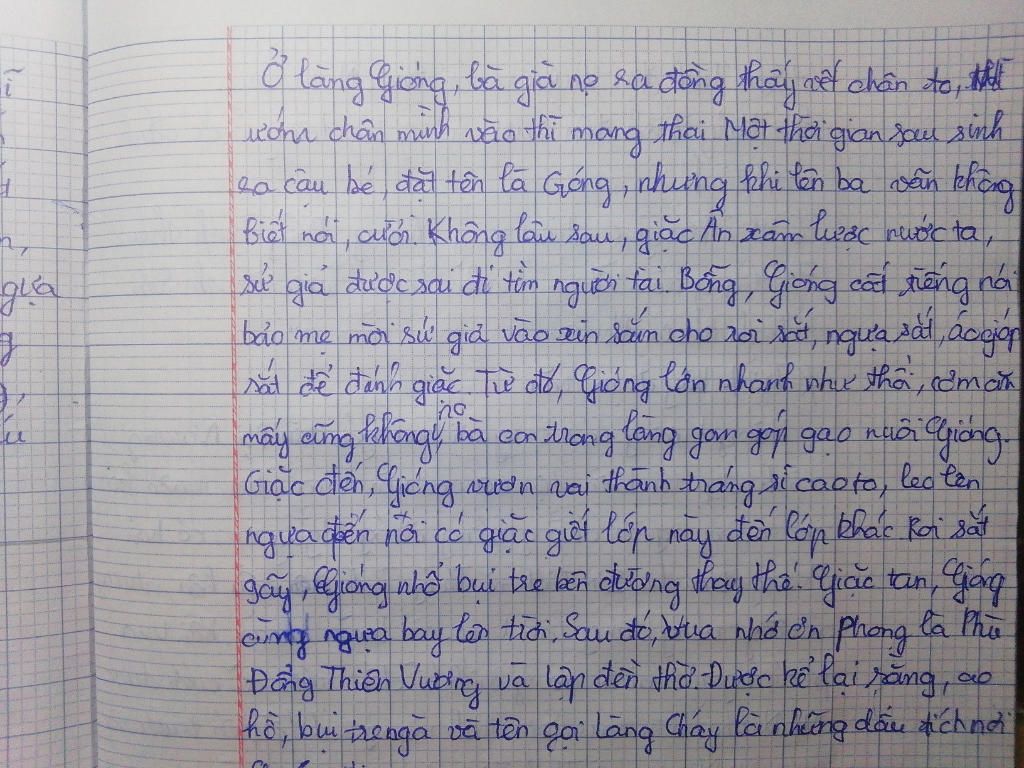 ĩ
Ở làng Gióng, bà già nọ ra đồng thấy vết chân to,
ướm chân mình vào thì mang thai Một thời gian sau sinh
ra cậu bé, đặt tên là Gióng, nhưng khi lên ba vẫn không
n,
biết nói, cười. Không lâu sau, giặc Ân xâm lược nước ta,
gựa
sứ giả được sai đi tìm người tài. Bỗng, Gióng cất tiếng nói
g
bảo mẹ mời sứ giả vào xin sắm cho roi sắt, ngựa sắt, áo giáp
sắt để đánh giặc Từ đó, Gióng lớn nhanh như thổi, cơm ăn
mấy cũng không no, bà con trong làng gom góp gạo nuôi Gióng.
Giặc đến, Gióng vươn vai thành tráng sĩ cao to, leo lên
ngựa đến nơi có giặc giết lớp này đến lớp khác Roi sắt
gãy, Gióng nhổ bụi tre bên đường thay thế. Giặc tan, Gióng
cùng ngựa bay lên trời. Sau đó, vua nhớ ơn phong là Phù
Đổng Thiên Vương và lập đền thờ. Được kể lại rằng, ao
hồ, bụi tre ngà và tên gọi làng Cháy là những dấu tích nơi